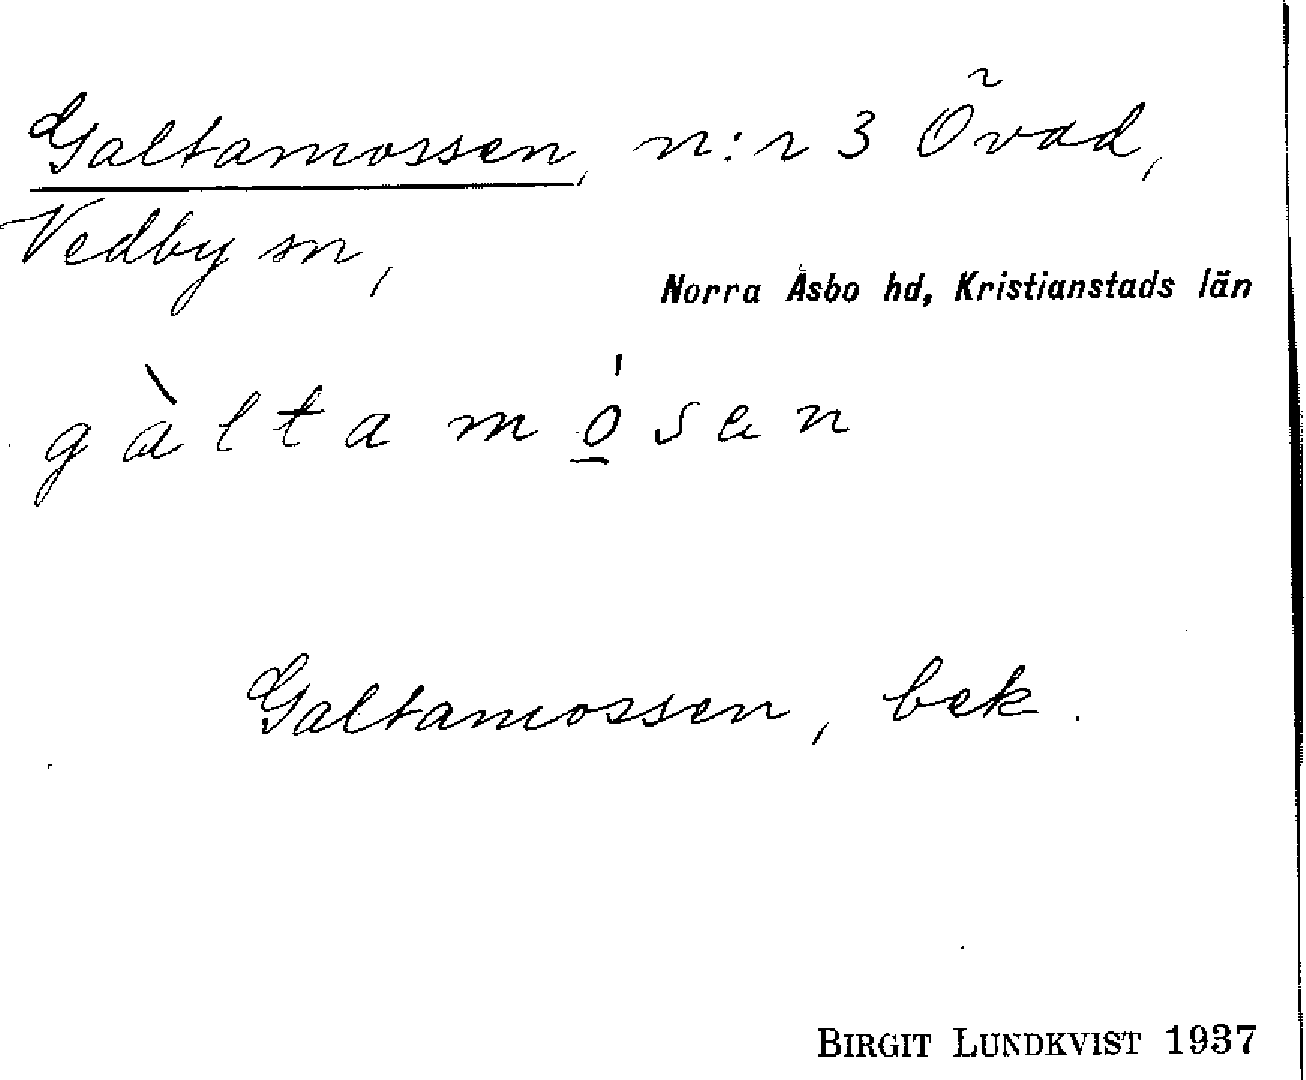 Galtamossen, n:r 3 Övad,
Vedby sn,
Norra Åsbo hd, Kristianstads län
gàltamó̲sen
Galtamossen, bek.
BIRGIT LUNDKVIST 1937